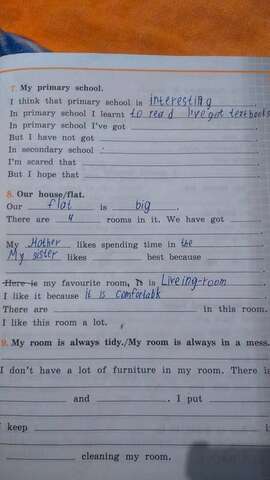 7. My primary school.
I think that primary school is interesting.
In primary school I learnt to read I've got textbooks
In primary school I've got ____.
But I have not got ____.
In secondary school ____.
I'm scared that ____.
But I hope that ____.
8. Our house/flat.
Our flat is big.
There are 4 rooms in it. We have got ____
____.
My Mother likes spending time in the
My sister likes ____ best because ____
____.
Here is my favourite room, It is Liveing-room
I like it because it is comfortable
There are ____ in this room.
I like this room a lot.
9. My room is always tidy./My room is always in a mess.
I don't have a lot of furniture in my room. There is
____ and ____. I put ____
I keep ____ i
____ cleaning my room.